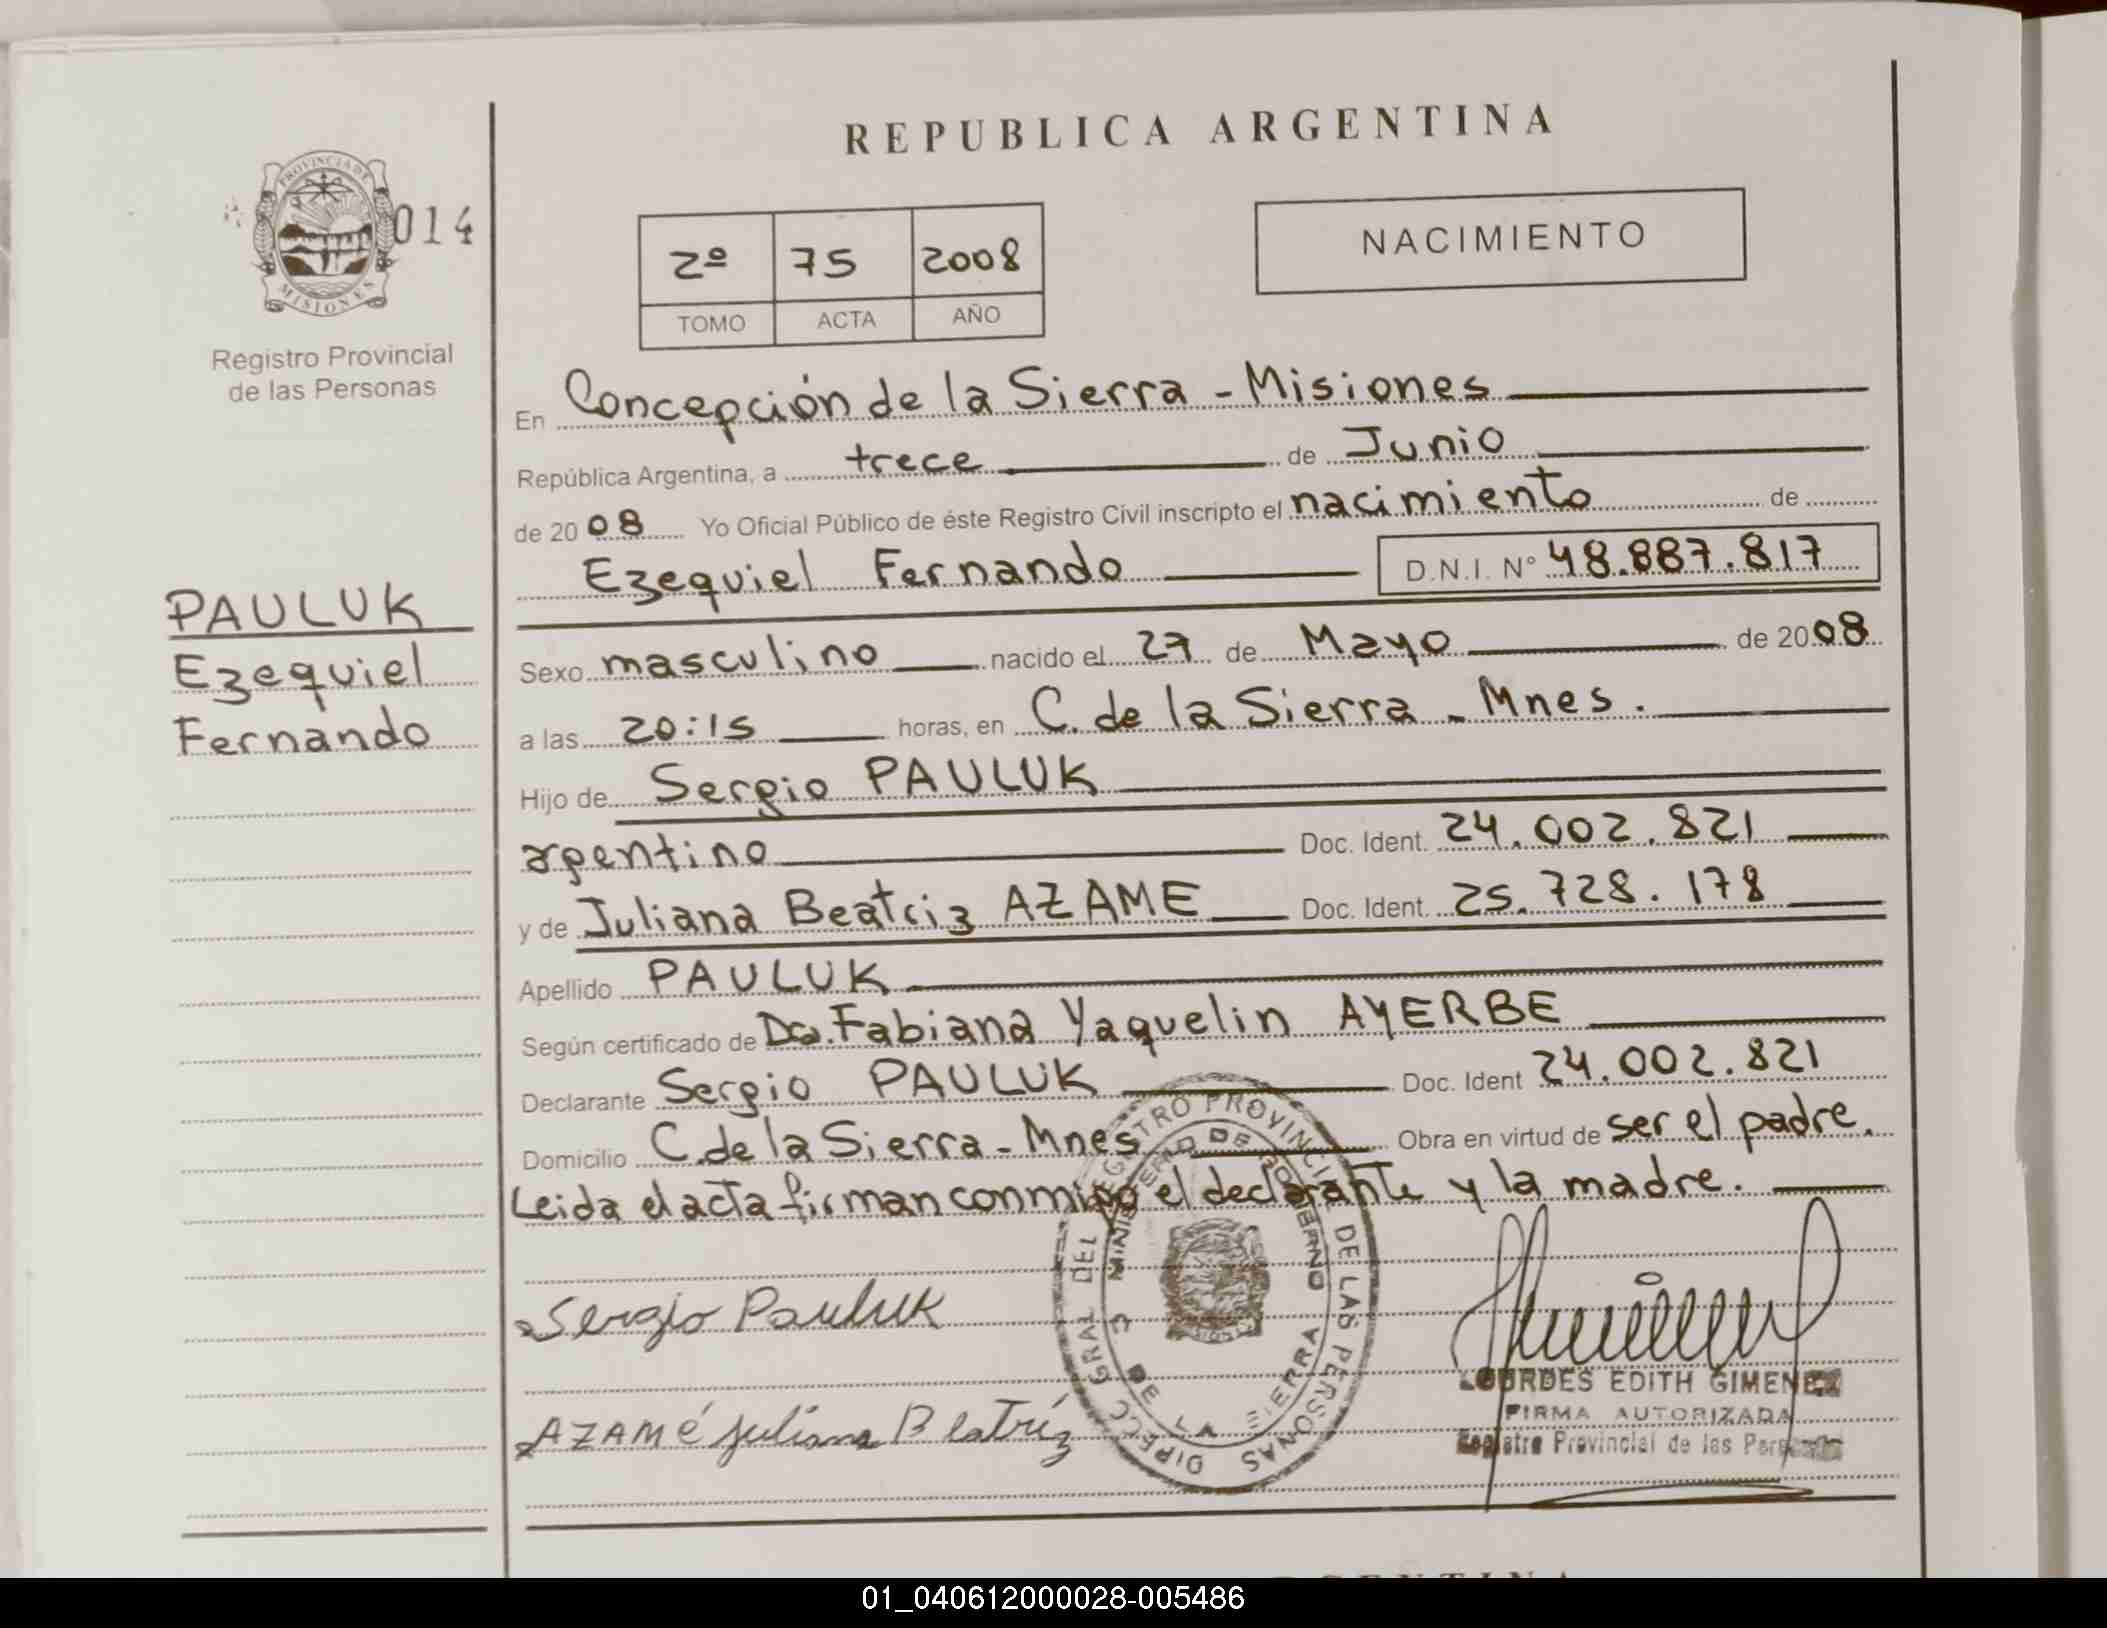 REPUBLICA ARGENTINA
PROVINCIA DE
MISIONES
014
Registro Provincial
de las Personas
2º 75 2008
TOMO ACTA AÑO
NACIMIENTO
En Concepción de la Sierra - Misiones
República Argentina, a trece de Junio
de 2008 Yo Oficial Público de éste Registro Civil inscripto el nacimiento de
Ezequiel Fernando D.N.I. Nº 48.887.817
PAULUK
Ezequiel
Fernando
Sexo masculino nacido el 27 de Mayo de 2008
a las 20:15 horas, en C. de la Sierra - Mnes.
Hijo de Sergio PAULUK
argentino Doc. Ident. 24.002.821
y de Juliana Beatriz AZAME Doc. Ident. 25.728.178
Apellido PAULUK
Según certificado de Dra. Fabiana Yaquelin AYERBE
Declarante Sergio PAULUK Doc. Ident 24.002.821
Domicilio C. de la Sierra - Mnes Obra en virtud de ser el padre.
Leida el acta firman conmigo el declarante y la madre.
Sergio Pauluk
AZAMÉ Juliana Beatríz
GRAL DEL REGISTRO PROVINCIAL DE LAS PERSONAS
MINISTERIO DE GOBIERNO
DE LA SIERRA
LOURDES EDITH GIMENEZ
FIRMA AUTORIZADA
Registro Provincial de las Personas
01_040612000028-005486